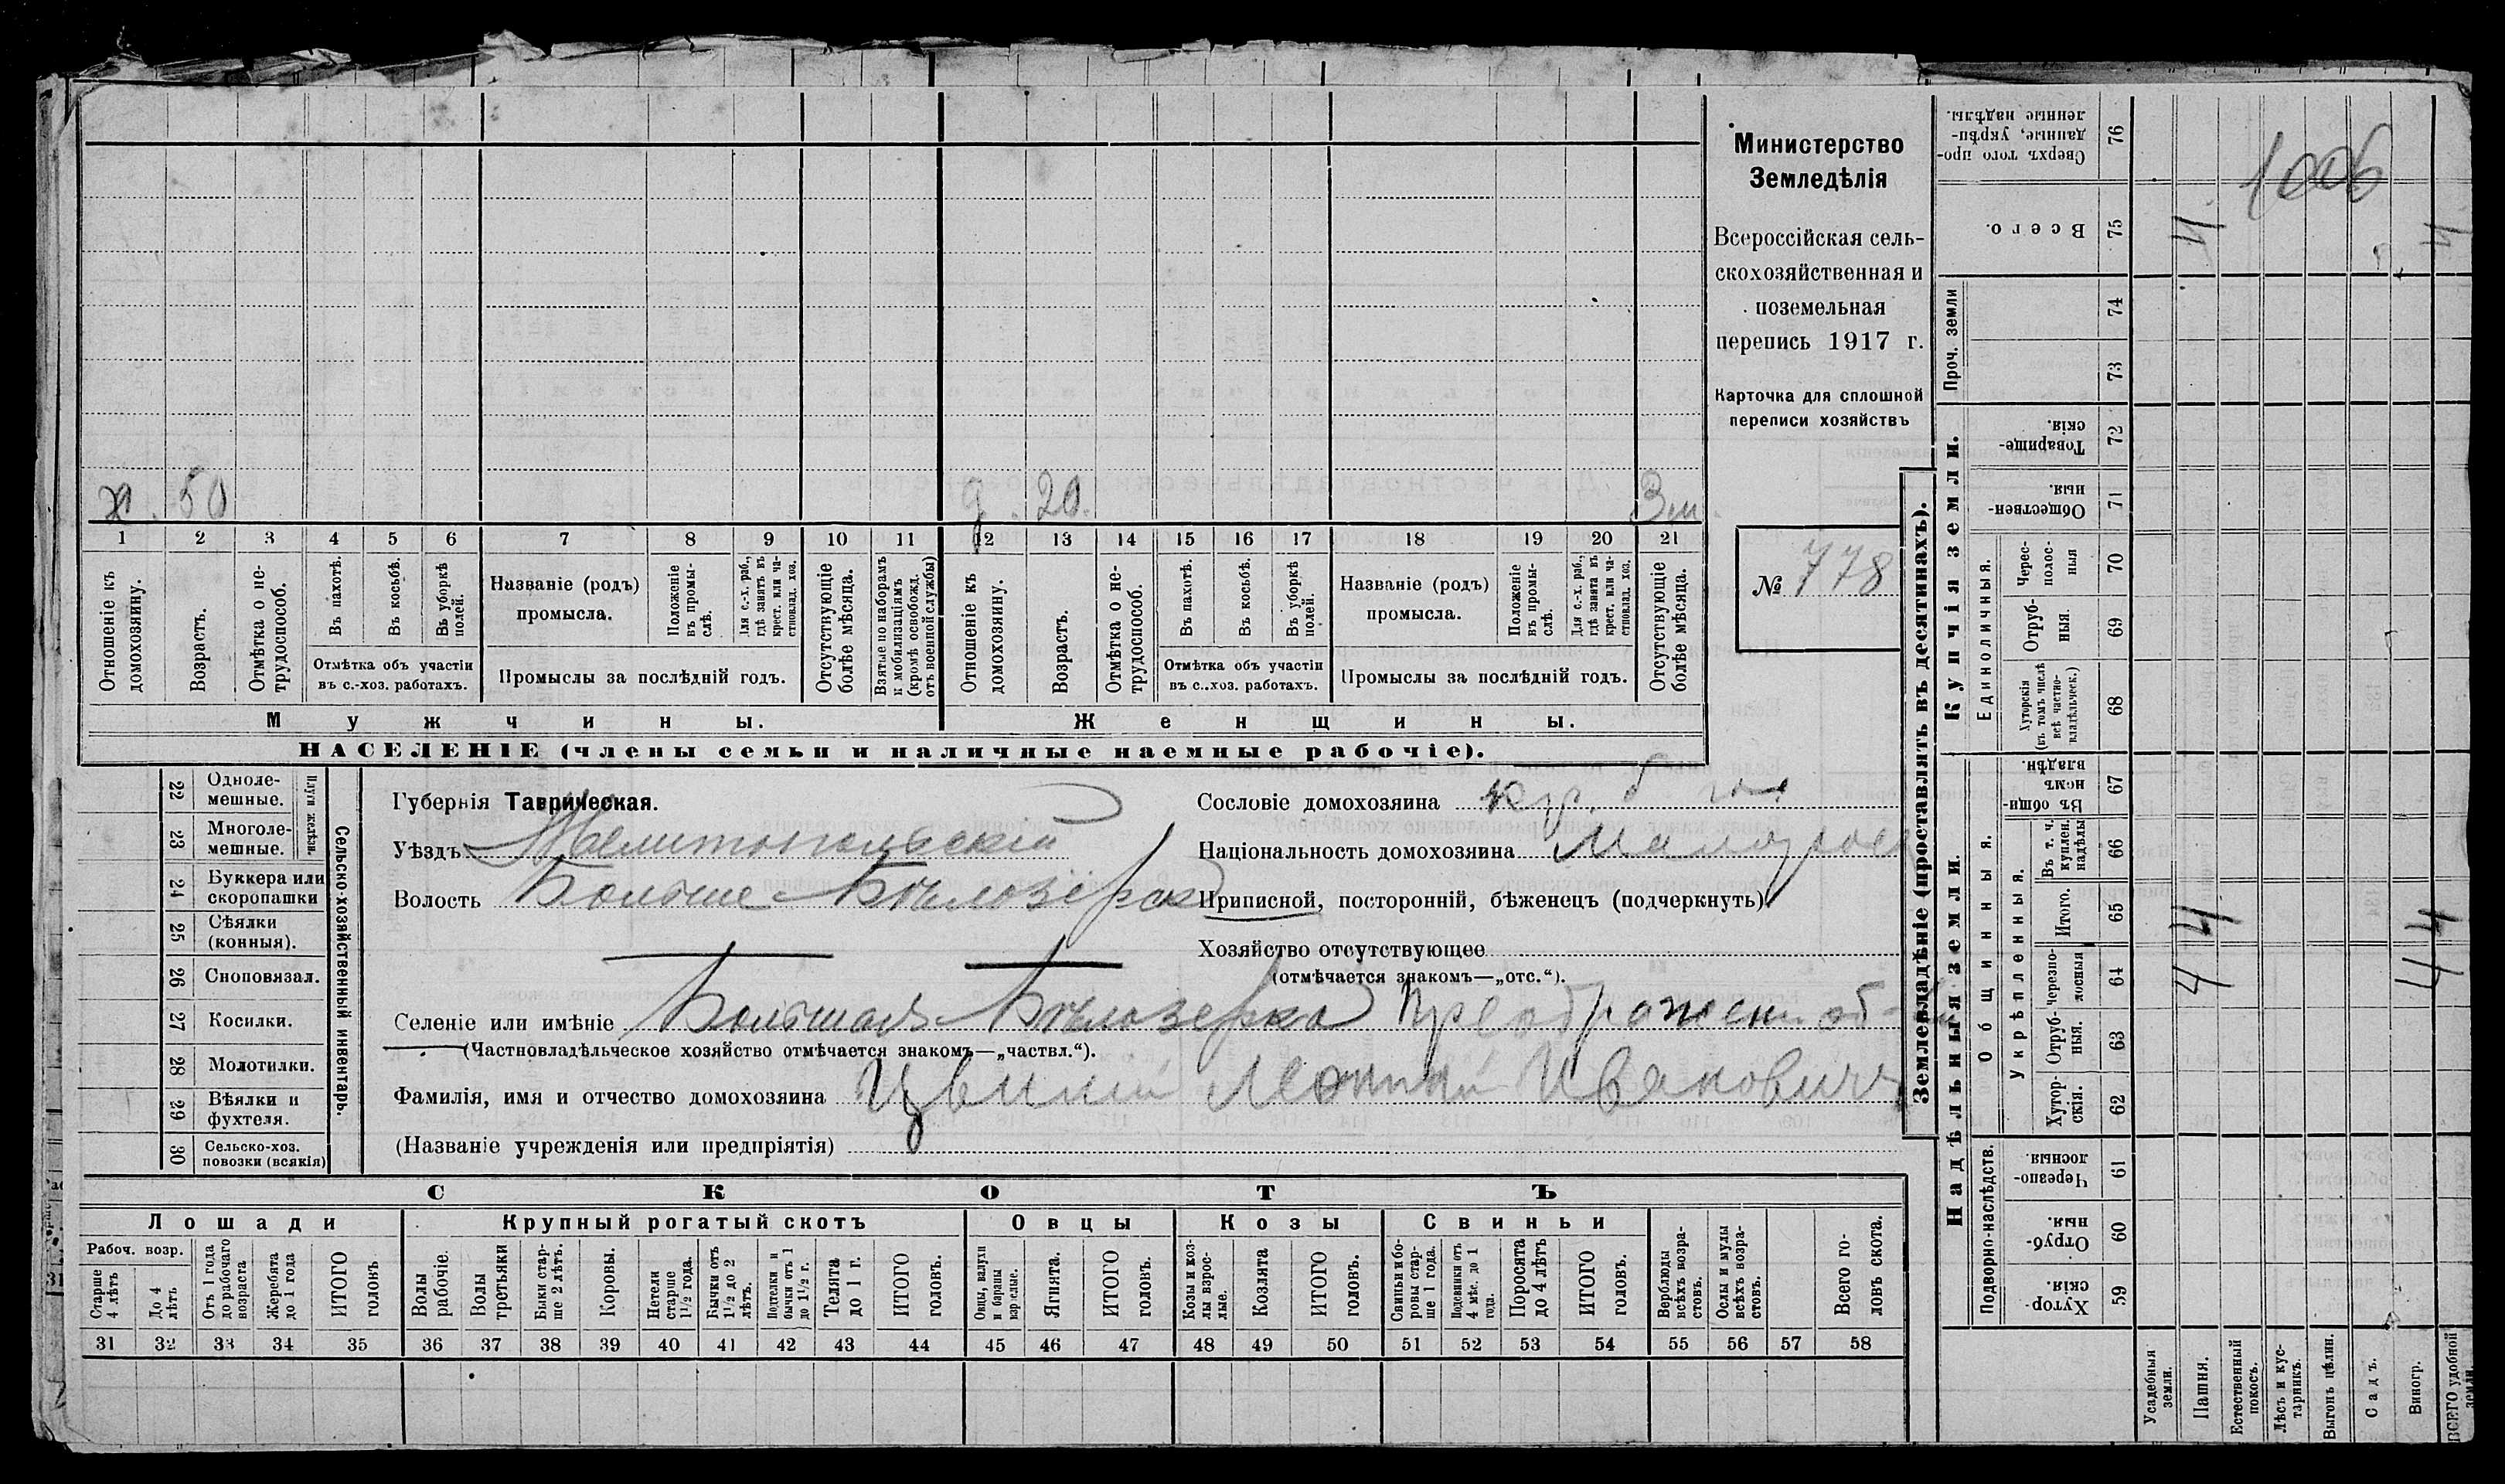 Министерство
Земледѣлія
Всероссійская сель-
скохозяйственная и
поземельная
перепись 1917 г.
Карточка для сплошной
переписи хозяйствъ
№ 778
х. 50
д. 20.
3 м.
1 2 3 4 5 6 7 8 9 10 11 12 13 14 15 16 17 18 19 20 21
Отношеніе къ
домохозяину.
Возрастъ.
Отмѣтка о не-
трудоспособ.
Въ пахотѣ.
Въ косьбѣ.
Въ уборкѣ
полей.
Отмѣтка объ участіи
въ с.-хоз. работахъ.
Названіе (родъ)
промысла.
Положеніе
въ промы-
слѣ.
Для с.-х. раб.,
гдѣ занятъ въ
крест. или ча-
стновлад. хоз.
Промыслы за послѣдній годъ.
Отсутствующіе
болѣе мѣсяца.
Взятые по наборамъ
и мобилизаціямъ
(кромѣ освобожд.
отъ военной службы)
Отношеніе къ
домохозяину.
Возрастъ.
Отмѣтка о не-
трудоспособ.
Въ пахотѣ.
Въ косьбѣ.
Въ уборкѣ
полей.
Отмѣтка объ участіи
въ с..хоз. работахъ.
Названіе (родъ)
промысла.
Положеніе
въ промы-
слѣ.
Для с.-х. раб.,
гдѣ занята въ
крест. или ча-
стновлад. хоз.
Промыслы за послѣдній годъ.
Отсутствующіе
болѣе мѣсяца.
Мужчины.
Женщины.
НАСЕЛЕНІЕ (члены семьи и наличные наемные рабочіе).
22 Одноле-
мешные.
23 Многоле-
мешные.
Плуги желѣзн.
24 Буккера или
скоропашки
25 Сѣялки
(конныя).
26 Сноповязал.
27 Косилки.
28 Молотилки.
29 Вѣялки и
фухтеля.
30 Сельско-хоз.
повозки (всякія)
Сельско-хозяйственный инвентарь.
Губернія Таврическая.
Уѣздъ Мелитопольскій
Волость Больше-Бѣлозерск
Селеніе или имѣніе Большая Бѣлозерка Преображенск. об-
(Частновладѣльческое хозяйство отмѣчается знакомъ—„частвл.“).
Фамилія, имя и отчество домохозяина Леонтій Ивановичъ
(Названіе учрежденія или предпріятія)
Сословіе домохозяина кр.
Національность домохозяина Малорос
Приписной, посторонній, бѣженецъ (подчеркнуть)
Хозяйство отсутствующее
(отмѣчается знакомъ—„отс.“).
СКОТЪ
Лошади
Крупный рогатый скотъ
Овцы
Козы
Свиньи
Рабоч. возр.
Старше
4 лѣтъ
До 4
лѣтъ
Отъ 1 года
до рабочаго
возраста
Жеребята
до 1 года
ИТОГО
головъ
Волы
рабочіе.
Волы
третьяки
Быки стар-
ше 2 лѣтъ.
Коровы.
Нетели
старше
1½ года.
Бычки отъ
1½ до 2
лѣтъ.
Подтелки и
бычки отъ 1
до 1½ г.
Телята
до 1 г.
ИТОГО
головъ.
Овцы, валухи
и бараны
взрослые.
Ягнята.
ИТОГО
головъ.
Козы и коз-
лы взрос-
лые.
Козлята
ИТОГО
головъ.
Свиньи и бо-
ровы стар-
ше 1 года.
Подсвинки отъ
4 мѣс. до 1
года.
Поросята
до 4 лѣтъ
ИТОГО
головъ.
Верблюды
всѣхъ возра-
стовъ.
Ослы и мулы
всѣхъ возра-
стовъ.
Всего го-
ловъ скота.
31 32 33 34 35 36 37 38 39 40 41 42 43 44 45 46 47 48 49 50 51 52 53 54 55 56 57 58
Землевладѣніе (проставлять въ десятинахъ).
Купчія земли.
Надѣльныя земли.
Сверхъ того про-
данные, укрѣп-
ленные надѣлы.
76
Всего.
75
Проч. земли
74
73
Товарище-
скія.
72
Обществен-
ныя.
71
Единоличныя.
Черес-
полос-
ныя
70
Отруб-
ныя.
69
Хуторскія
(въ томъ числѣ
всѣ частно-
владѣльческ.)
68
Общинныя.
Въ общи-
номъ
владѣн.
67
Укрѣпленныя.
Въ т. ч.
куплен.
надѣлы
66
Итого.
65
Черезпо-
лосныя
64
Отруб-
ныя.
63
Хутор-
скія.
62
Подворно-наслѣдств.
Черезпо-
лосныя.
61
Отруб-
ныя.
60
Хутор-
скія.
59
Усадебныя
земли.
Пашня.
Естественный
покосъ.
Лѣсъ и кус-
тарникъ.
Выгонъ цѣлин.
Садъ.
Виногр.
ВСЕГО удобной
земли.
1006
4 4
4 4
4 4